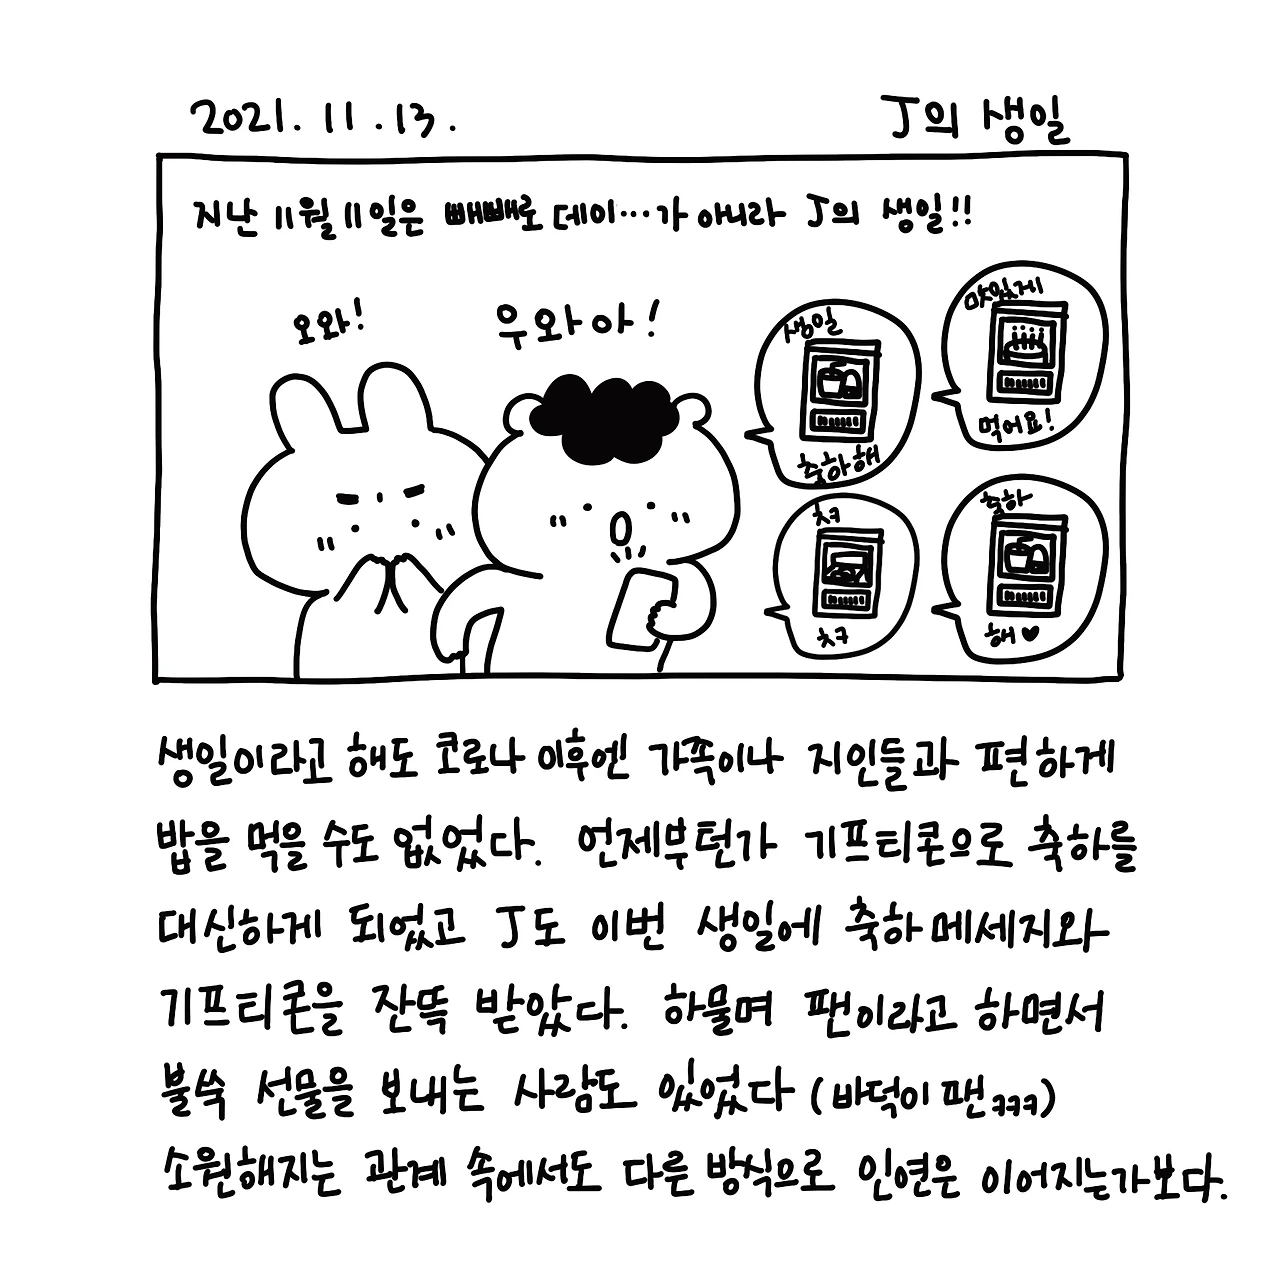 2021. 11. 13.
J의 생일
지난 11월 11일은 빼빼로 데이···가 아니라 J의 생일!!
오와!
우와아!
생일
축하해
맛있게
먹어요!
ㅊㅋ
ㅊㅋ
축하
해♥
생일이라고 해도 코로나 이후엔 가족이나 지인들과 편하게
밥을 먹을 수도 없었다. 언제부턴가 기프티콘으로 축하를
대신하게 되었고 J도 이번 생일에 축하 메세지와
기프티콘을 잔뜩 받았다. 하물며 팬이라고 하면서
불쑥 선물을 보내는 사람도 있었다 (바덕이 팬ㅋㅋㅋ)
소원해지는 관계 속에서도 다른 방식으로 인연은 이어지는가보다.